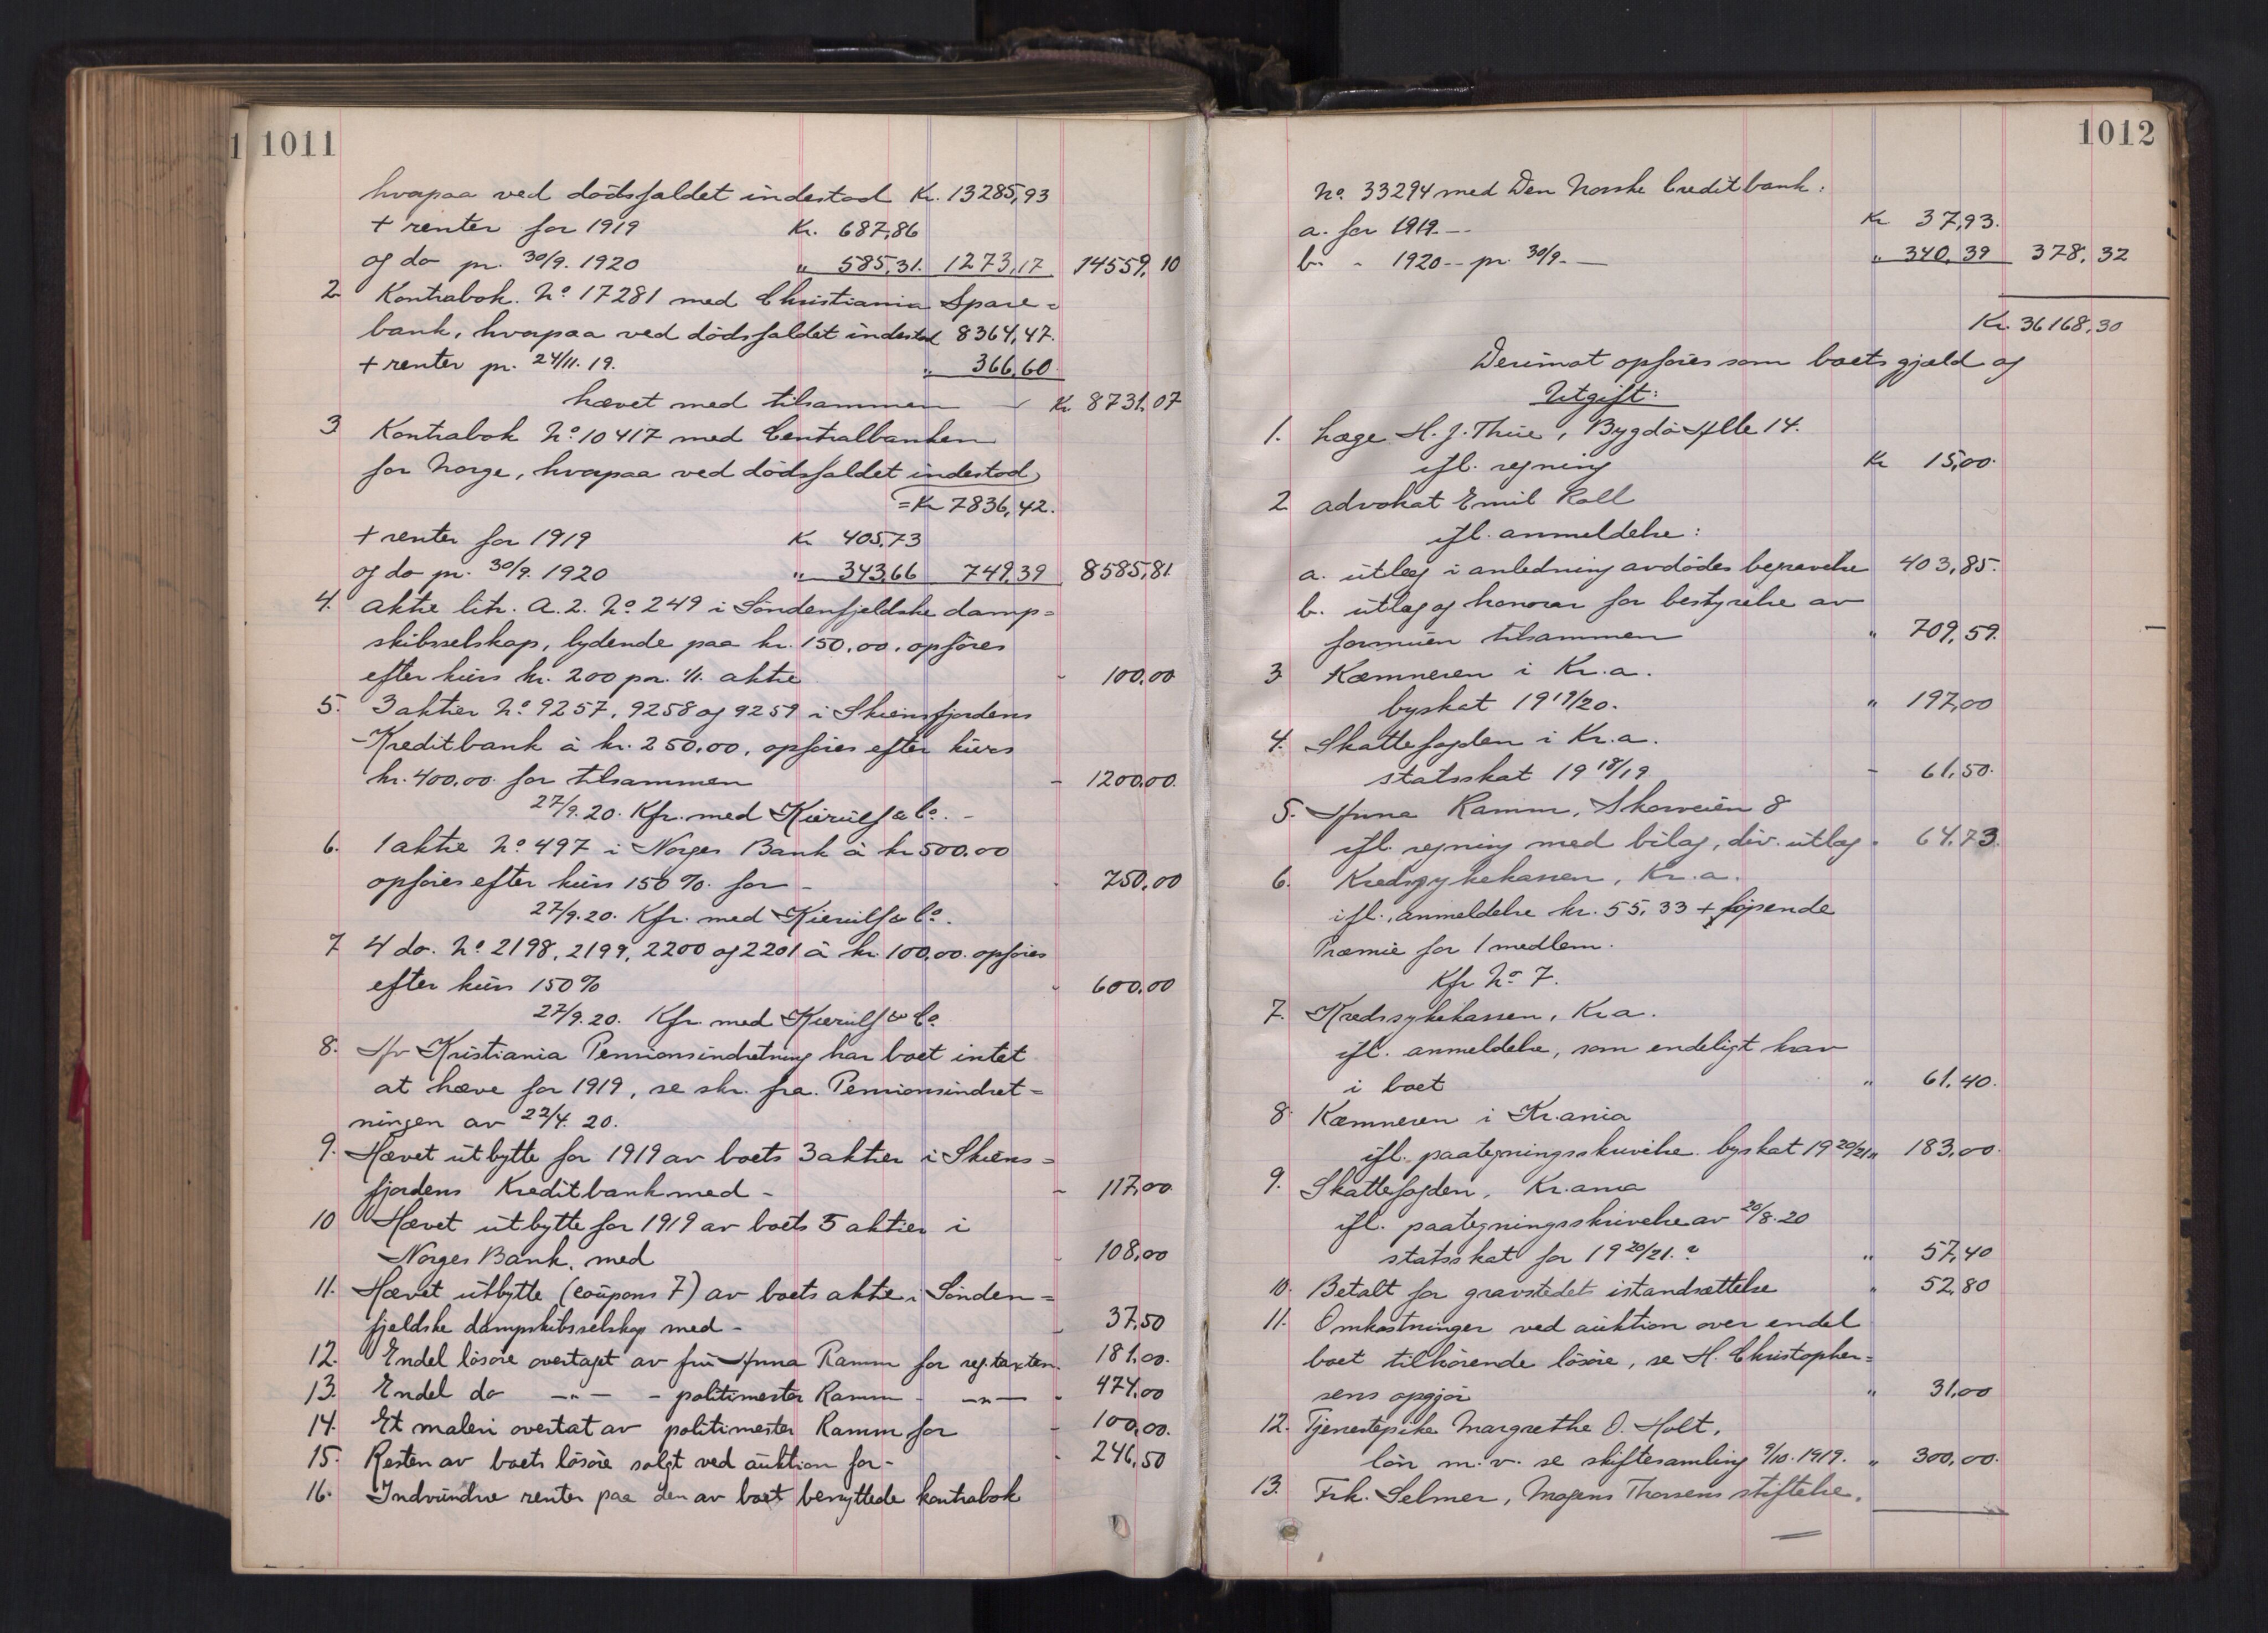 1 1011
hvorpaa ved dödsfaldet indestod Kr. 13285,93
+ renter for 1919 Kr. 687,86
og do pr. 30/9. 1920 " 585,31. 1273,17 14559,10
2 Kontrabok No 17281 med Christiania Spare=
bank, hvorpaa ved dödsfaldet indestod 8364,47.
+ renter pr. 24/11. 19. " 366,60
hævet med tilsammen - Kr 8731,07
3 Kontrabok No 10417 med Centralbanken
for Norge, hvorpaa ved dödsfaldet indestod
= Kr 7836,42.
+ renter for 1919 Kr 405,73
og do pr. 30/9. 1920 " 343,66 749,39 8585,81.
4. Aktie litr. A. 2. No 249 i Söndenfjeldske damp=
skibsselskap, lydende paa kr. 150,00. opföres
efter kurs kr. 200 pr. 1/1. aktie - 100,00
5. 3 aktier No 9257, 9258 og 9259 i Skiensfjordens
Kreditbank à kr. 250,00. opföres efter kurs
kr. 400,00. for tilsammen - 1200,00.
27/9. 20. Kfr. med Kierulf & Co. -
6. 1 aktie No 497 i Norges Bank à kr 500,00
opföres efter kurs 150 %. for - - 750,00
27/9. 20. Kfr. med Kierulf & Co.
7 4 do. No 2198, 2199, 2200 og 2201 à kr. 100,00. opföres
efter kurs 150 % - 600,00
27/9. 20. Kfr. med Kierulf & Co.
8. Av Kristiania Pensionsindretning har boet intet
at hæve for 1919, se skr. fra Pensionsindret=
ningen av 22/4. 20.
9. Hævet utbytte for 1919 av boets 3 aktier i Skiens=
fjordens Kreditbank med - - 117,00
10 Hævet utbytte for 1919 av boets 5 aktier i
Norges Bank. med - 108,00
11. Hævet utbytte (coupons 7) av boets aktie i Sönden=
fjeldske dampskibsselskap med - - 37,50
12. Endel lösöre overtaget av fru Anna Ramm for reg.taxten. 181,00.
13. Endel do -"- - politimester Ramm - -"- - 474,00
14. Et maleri overtat av politimester Ramm for - 100,00.
15. Resten av boets lösöre solgt ved auktion for - - 246,50
16. Indvundne renter paa den av boet benyttede kontrabok
1012
No 33294 med Den Norske Creditbank:
a. for 1919. - - Kr 37,93.
b. - 1920 - - pr. 30/9. - " 340,39 378,32
Kr. 36168,30
Derimot opföres som boets gjæld og
Utgift:
1. Læge H. J. Thue, Bygdö Alle 14.
ifl. regning Kr 15,00.
2 Advokat Emil Roll
ifl. anmeldelse:
a. utlæg i anledning avdödes begravelse 403,85.
b. utlæg og honorar for bestyrelse av
formuen tilsammen " 709,59.
3 Kæmneren i Kr.a.
byskat 1919/20. " 197,00
4. Skattefogden i Kr.a.
statsskat 1918/19 - 61,50.
5. Anna Ramm, Skovveien 8
ifl. regning med bilag, div. utlæg - 64,73.
6. Kredssykekassen, Kr.a.
ifl. anmeldelse kr. 55,33 + löpende
Præmie for 1 medlem.
Kfr No 7.
7. Kredssykekassen, Kr.a.
ifl. anmeldelse, som endeligt krav
i boet " 61,40.
8. Kæmneren i Kr.ania
ifl. paategningsskrivelse byskat 1920/21 " 183,00.
9. Skattefogden, Kr.ania
ifl. paategningsskrivelse av 20/8. 20
statsskat for 1920/21. ? " 57,40
10. Betalt for gravstedets istandsættelse " 52,80
11. Omkostninger ved auktion over endel
boet tilhörende lösöre, se H. Christopher=
sens opgjör " 31,00
12. Tjenestepike Margrethe O. Holt,
lön m. v. se skiftesamling 9/10. 1919. " 300,00.
13. Frk. Selmer, Mogens Thorsens stiftelse.